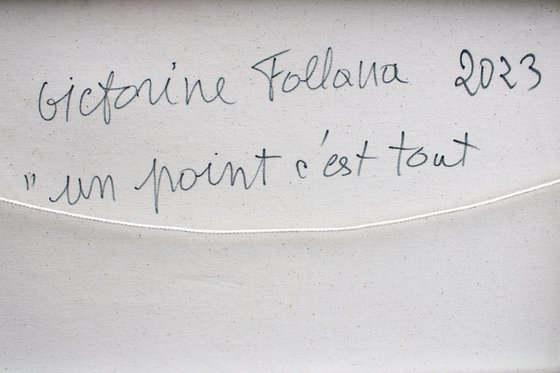 Victorine Follana 2023
" un point c'est tout